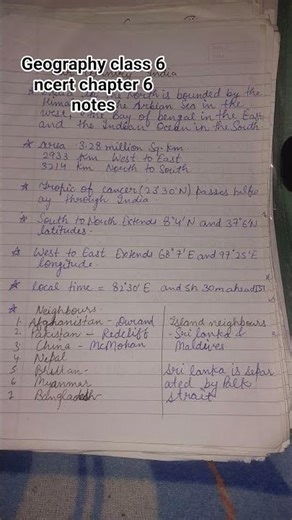 Geography class 6
ncert chapter 6
notes
India
India in the North is bounded by the
Hima the Arbian Sea in the
west, the Bay of bengal in the East
and the Indian Ocean in the South
* Area 3.28 million Sq. Km
2933 Km West to East
3214 Km North to South
* Tropic of cancer (23°30'N) passes
ay through India
* South to North Extends 8°4'N and 37°6'N
latitudes.
* West to East Extends 68°7'E and 97°25'E
longitude.
* Local time = 82°30'E and 5h 30m ahead
* Neighbours
1. Afghanistan - Durand
2. Pakistan - Redcliff
3 China - McMohan
4 Nepal
5 Bhutan
6 Myanmar
7 Bangladesh
Island neighbours
- Sri lanka &
Maldives
Sri lanka is separ
ated by Palk
strait